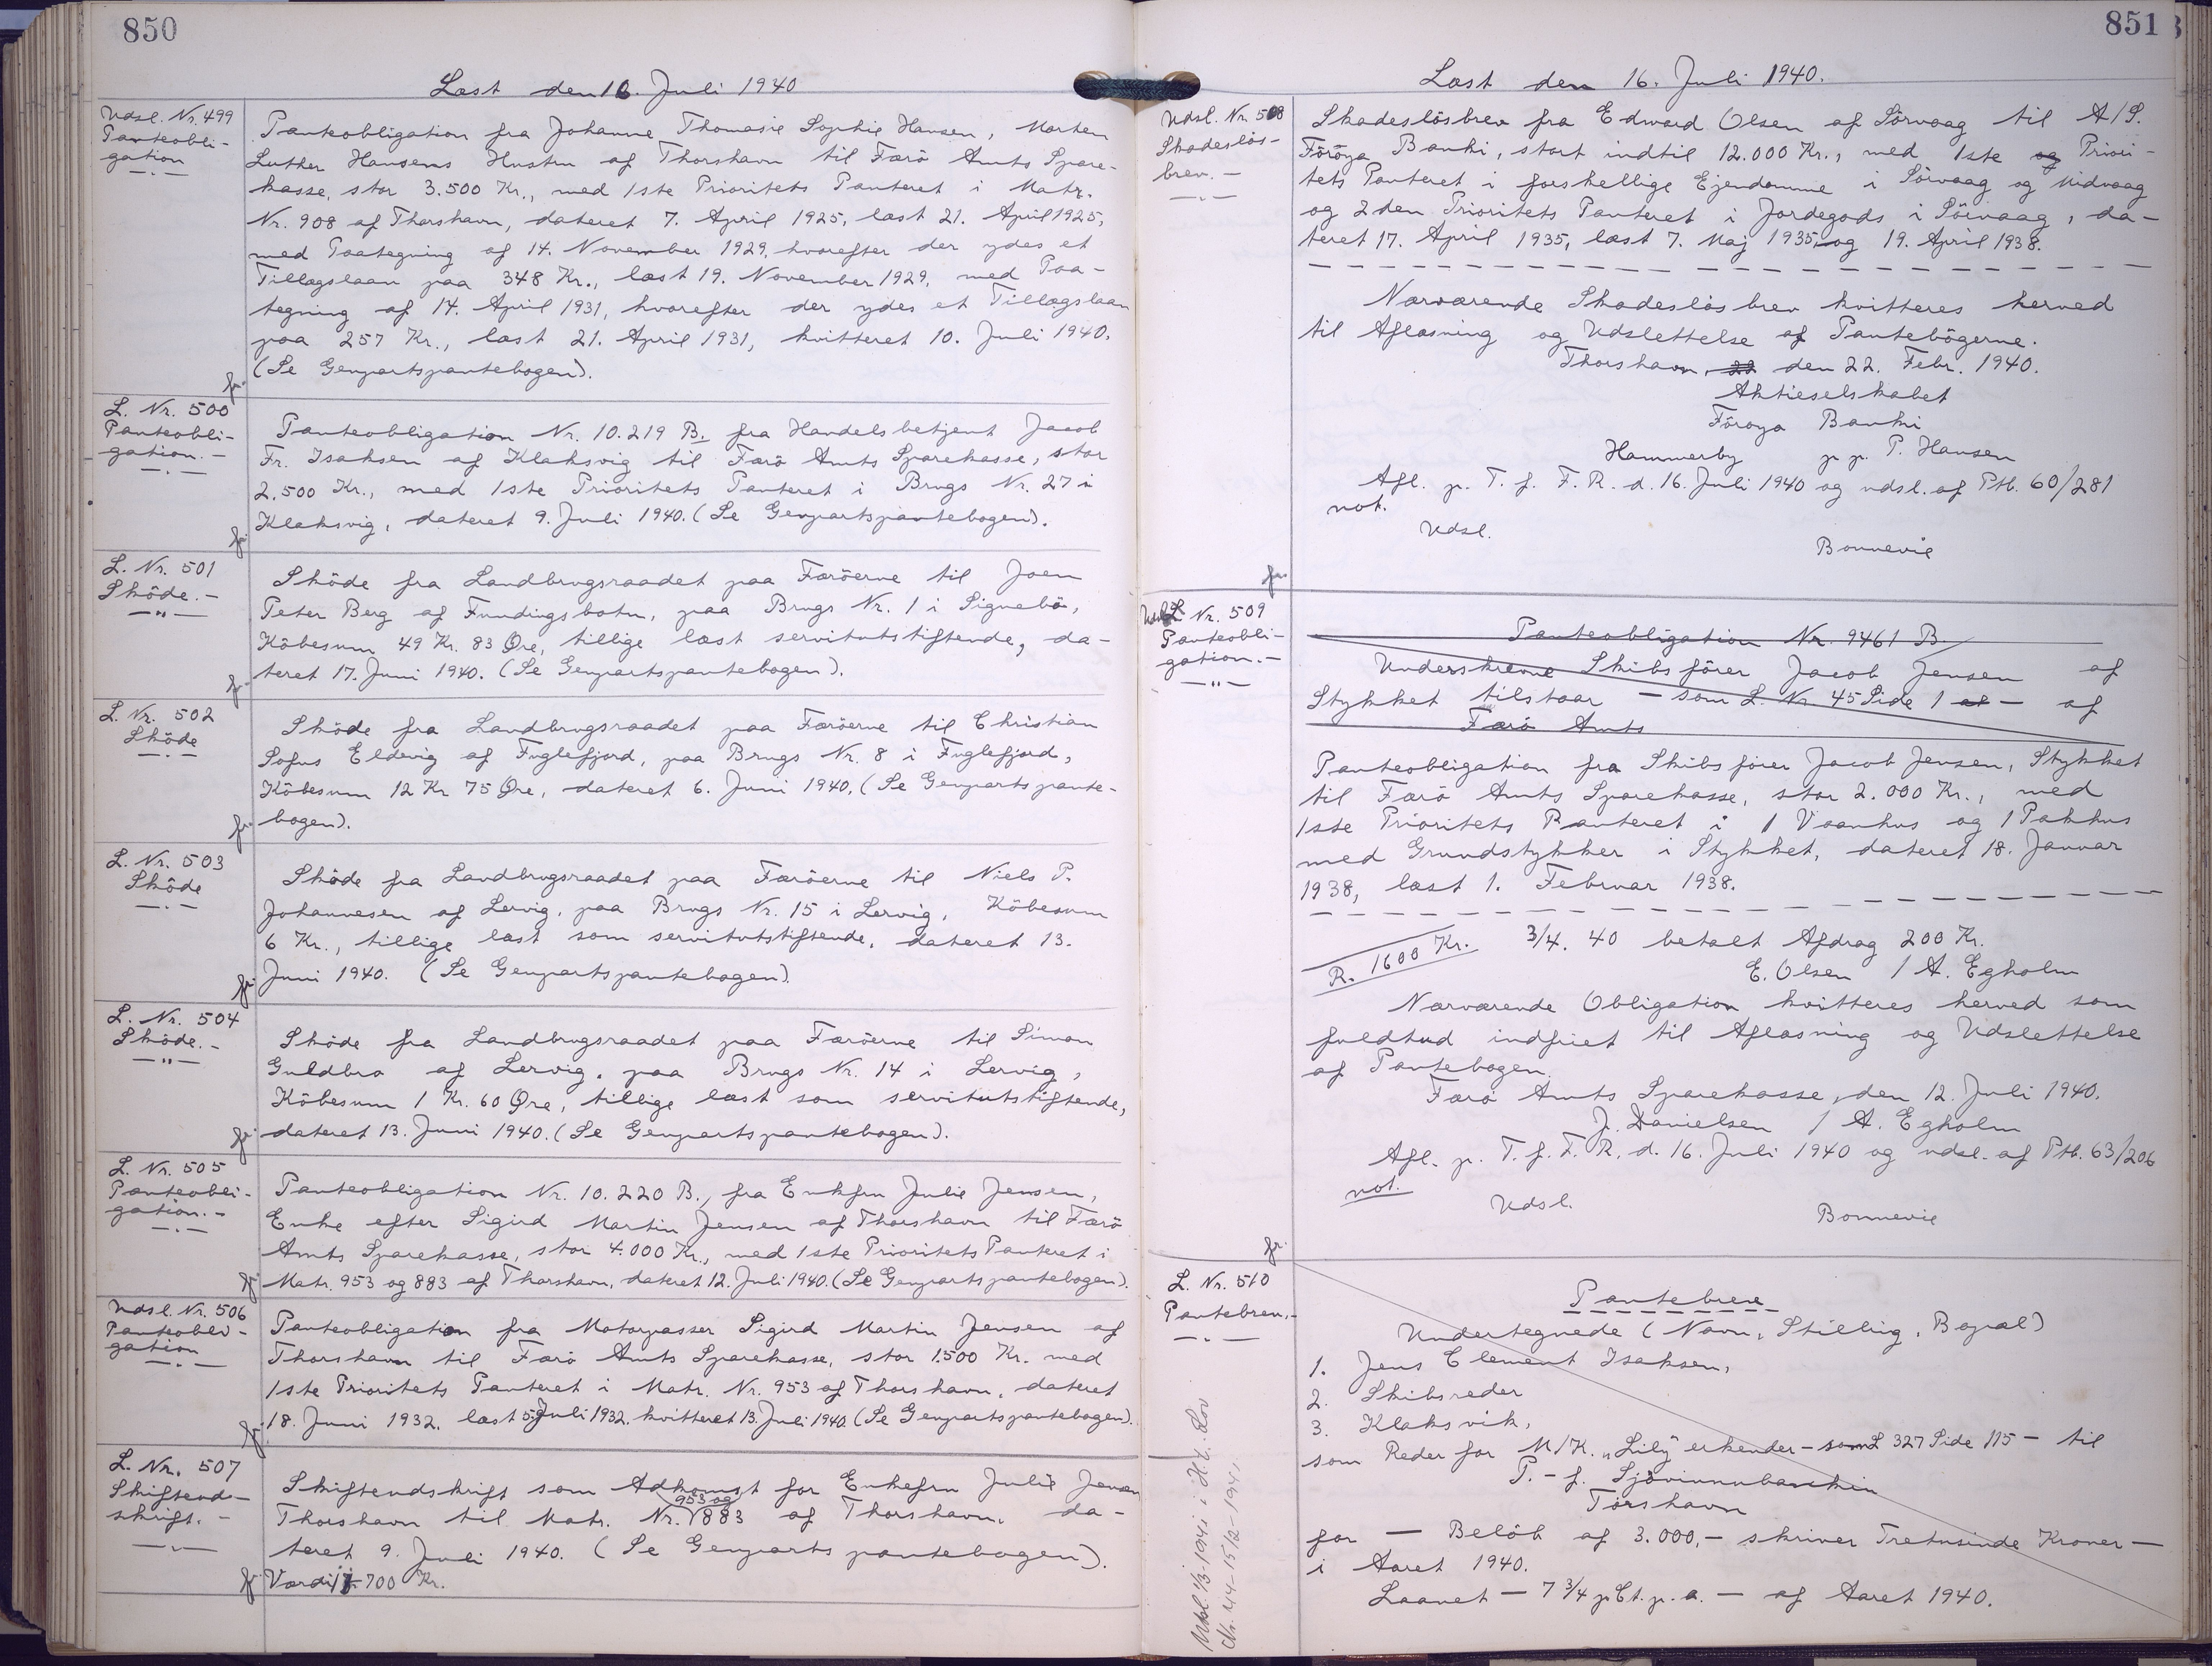 850
Læst den 16. Juli 1940
Udsl. Nr. 499
Panteobli-
gation
Panteobligation fra Johanne Thomasie Sophie Hansen, Morten
Luther Hansens Hustru af Thorshavn til Færö Amts Spare-
kasse, stor 3.500 Kr., med 1ste Prioritets Panteret i Matr.
Nr. 908 af Thorshavn, dateret 7. April 1925, læst 21. April 1925,
med Paategning af 14. November 1929, hvorefter der ydes et
Tillægslaan paa 348 Kr., læst 19. November 1929, med Paa-
tegning af 14. April 1931, hvorefter der ydes et Tillægslaan
paa 257 Kr., læst 21. April 1931, kvitteret 10. Juli 1940.
(Se Genpartspantebogen).
L. Nr. 500
Panteobli-
gation.-
Panteobligation Nr. 10.219 B. fra Handelsbetjent Jacob
Fr. Isaksen af Klaksvig til Færö Amts Sparekasse, stor
2.500 Kr., med 1ste Prioritets Panteret i Brugs Nr. 27 i
Klaksvig, dateret 9. Juli 1940. (Se Genpartspantebogen).
L. Nr. 501
Sköde.-
Sköde fra Landbrugsraadet paa Færöerne til Joen
Peter Berg af Funningsbotn, paa Brugs Nr. 1 i Signebö,
Köbesum 49 Kr. 83 Øre, tillige læst servitutstiftende, da-
teret 17. Juni 1940. (Se Genpartspantebogen).
L. Nr. 502
Sköde
Sköde fra Landbrugsraadet paa Færöerne til Christian
Sofus Eldevig af Fuglefjord, paa Brugs Nr. 8 i Fuglefjord,
Köbesum 12 Kr 75 Øre, dateret 6. Juni 1940. (Se Genpartspante-
bogen).
L. Nr. 503
Sköde
Sköde fra Landbrugsraadet paa Færöerne til Niels P.
Johannesen af Lervig, paa Brugs Nr. 15 i Lervig, Köbesum
6 Kr., tillige læst som servitutstiftende, dateret 13.
Juni 1940. (Se Genpartspantebogen).
L. Nr. 504
Sköde.-
Sköde fra Landbrugsraadet paa Færöerne til Simon
Guldbra af Lervig, paa Brugs Nr. 14 i Lervig,
Köbesum 1 Kr. 60 Øre, tillige læst som servitutstiftende,
dateret 13. Juni 1940. (Se Genpartspantebogen).
L. Nr. 505
Panteobli-
gation.-
Panteobligation Nr. 10.220 B., fra Enkefru Julie Jensen,
Enke efter Sigird Martin Jensen af Thorshavn til Færö
Amts Sparekasse, stor 4.000 Kr., med 1ste Prioritets Panteret i
Matr. 953 og 883 af Thorshavn, dateret 12. Juli 1940. (Se Genpartspantebogen).
Udsl. Nr. 506
Panteobli-
gation
Panteobligation fra Motorpasser Sigird Martin Jensen af
Thorshavn til Færö Amts Sparekasse, stor 1.500 Kr. med
1ste Prioritets Panteret i Matr. Nr. 953 af Thorshavn, dateret
18. Juni 1932. læst 5. Juli 1932. kvitteret 13. Juli 1940. (Se Genpartspantebogen).
L. Nr. 507
Skifteud-
skrift.-
Skifteudskrift som Adkomst for Enkefru Julie Jensen
953 og
Thorshavn til Matr. Nr. 883 af Thorshavn, da-
teret 9. Juli 1940. (Se Genpartspantebogen).
Værdi 700 Kr.
851
Læst den 16. Juli 1940.
Udsl. Nr. 508
Skadeslös-
brev.-
Skadeslösbrev fra Edward Olsen af Sörvaag til A/S.
Föröya Banki, stort indtil 12.000 Kr., med 1ste og Priori-
tets Panteret i forskellige Ejendomme i Sörvaag og Midvaag
og 2den Prioritets Panteret i Jordegods i Sörvaag, da-
teret 17. April 1935, læst 7. Maj 1935, og 19. April 1938.
Nærværende Skadeslösbrev kvitteres herved
til Aflæsning og Udslettelse af Pantebögerne.
Thorshavn, 22 den 22. Febr. 1940.
Aktieselskabet
Föroya Banki
Hammerby p.p. P. Hansen
Afl. p. T. f. F. R. d. 16. Juli 1940 og udsl. af Ptb. 60/281
not.
Udsl.
Bonnevie
Udsl. Nr. 509
Panteobli-
gation.-
Panteobligation Nr. 9461 B.
Underskrevne Skibsförer Jacob Jensen af
Stykket tilstaar - som L. Nr. 45 Side 1 af - af
Færö Amts
Panteobligation fra Skibsförer Jacob Jensen, Stykket
til Færö Amts Sparekasse, stor 2.000 Kr., med
1ste Prioritets Panteret i 1 Vaanhus og 1 Pakhus
med Grundstykker i Stykket, dateret 18. Januar
1938, læst 1. Februar 1938.
R. 1600 Kr. 3/4. 40 betalt Afdrag 200 Kr.
E. Olsen / A. Egholm
Nærværende Obligation kvitteres herved som
fuldtud indfriet til Aflæsning og Udslettelse
af Pantebogen.
Færö Amts Sparekasse, den 12. Juli 1940.
J. Danielsen / A. Egholm
Afl. p. T. f. F. R. d. 16. Juli 1940 og udsl. af Ptb. 63/206
not.
Udsl.
Bonnevie
L. Nr. 510
Pantebrev.-
Pantebrev
Undertegnede (Navn, Stilling, Bopæl)
1. Jens Clement Isaksen,
2. Skibsreder
3. Klaksvik,
som Reder for M/K. "Lily" erkender - som L 327 Side 115 - til
P. - f. Sjóvinnubankin
Tórshavn
for - Belöb af 3.000,- skriver Tretusinde Kroner -
i Aaret 1940.
Laanet - 7 3/4 pCt. p. a. - af Aaret 1940.
Udsl. 1/3-1941 i H.t. Lov
Nr. 44-15/2-1941